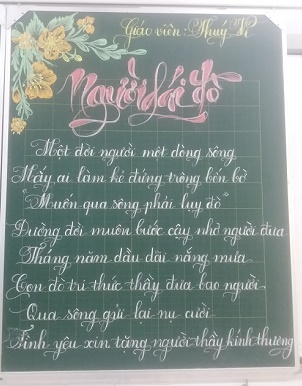 Giáo viên: Thuý K
Người lái đò
Một đời người một dòng sông
Mấy ai làm kẻ đứng trông bến bờ
"Muốn qua sông phải luỵ đò"
Đường đời muôn bước cậy nhờ người đưa
Tháng năm dầu dãi nắng mưa
Con đò tri thức thầy đưa bao người
Qua sông gửi lại nụ cười
Tình yêu xin tặng người thầy kính thương